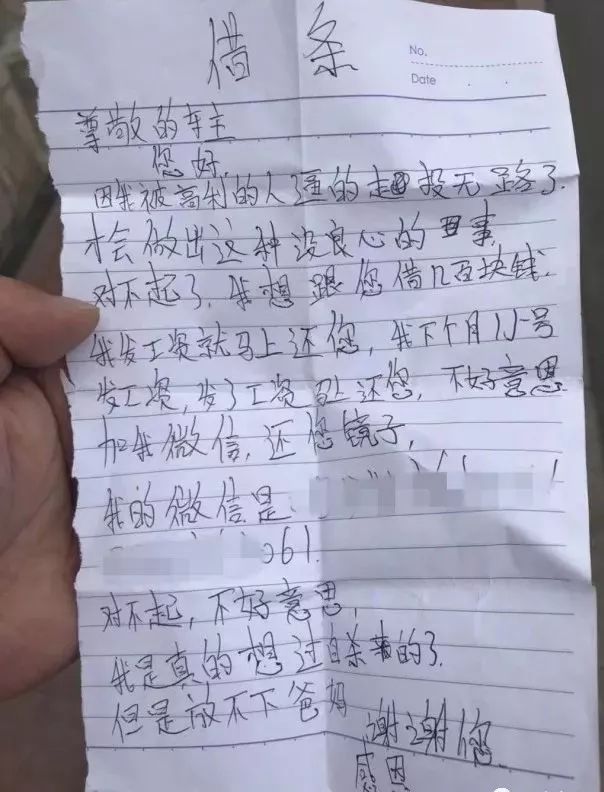 借条
No.
Date
尊敬的车主
您好.
因我被高利的人逼的走投无路了.
才会做出这种没良心的事,
对不起了.我想跟您借几百块钱.
我发工资就马上还您,我下个月15号
发工资,发了工资马上还您,不好意思
加我微信,还您镜子,
我的微信是
061.
对不起,不好意思,
我是真的想过自杀的了.
但是放不下爸妈
谢谢您
感恩